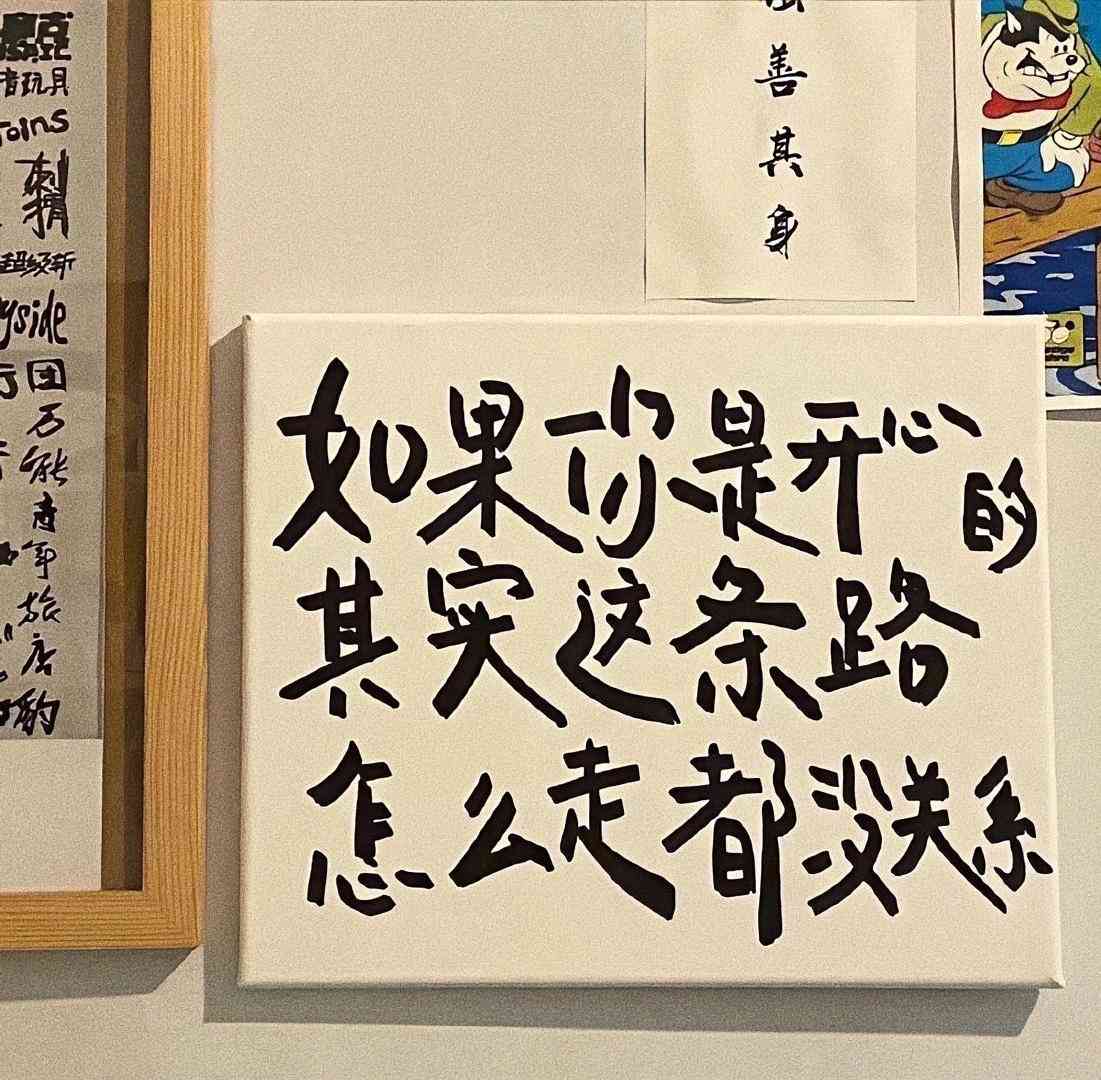 音玩具
Joins
刺猬
超级斩
yside
团
万能青年旅店
豹
善其身
如果你是开心的
其实这条路
怎么走都没关系